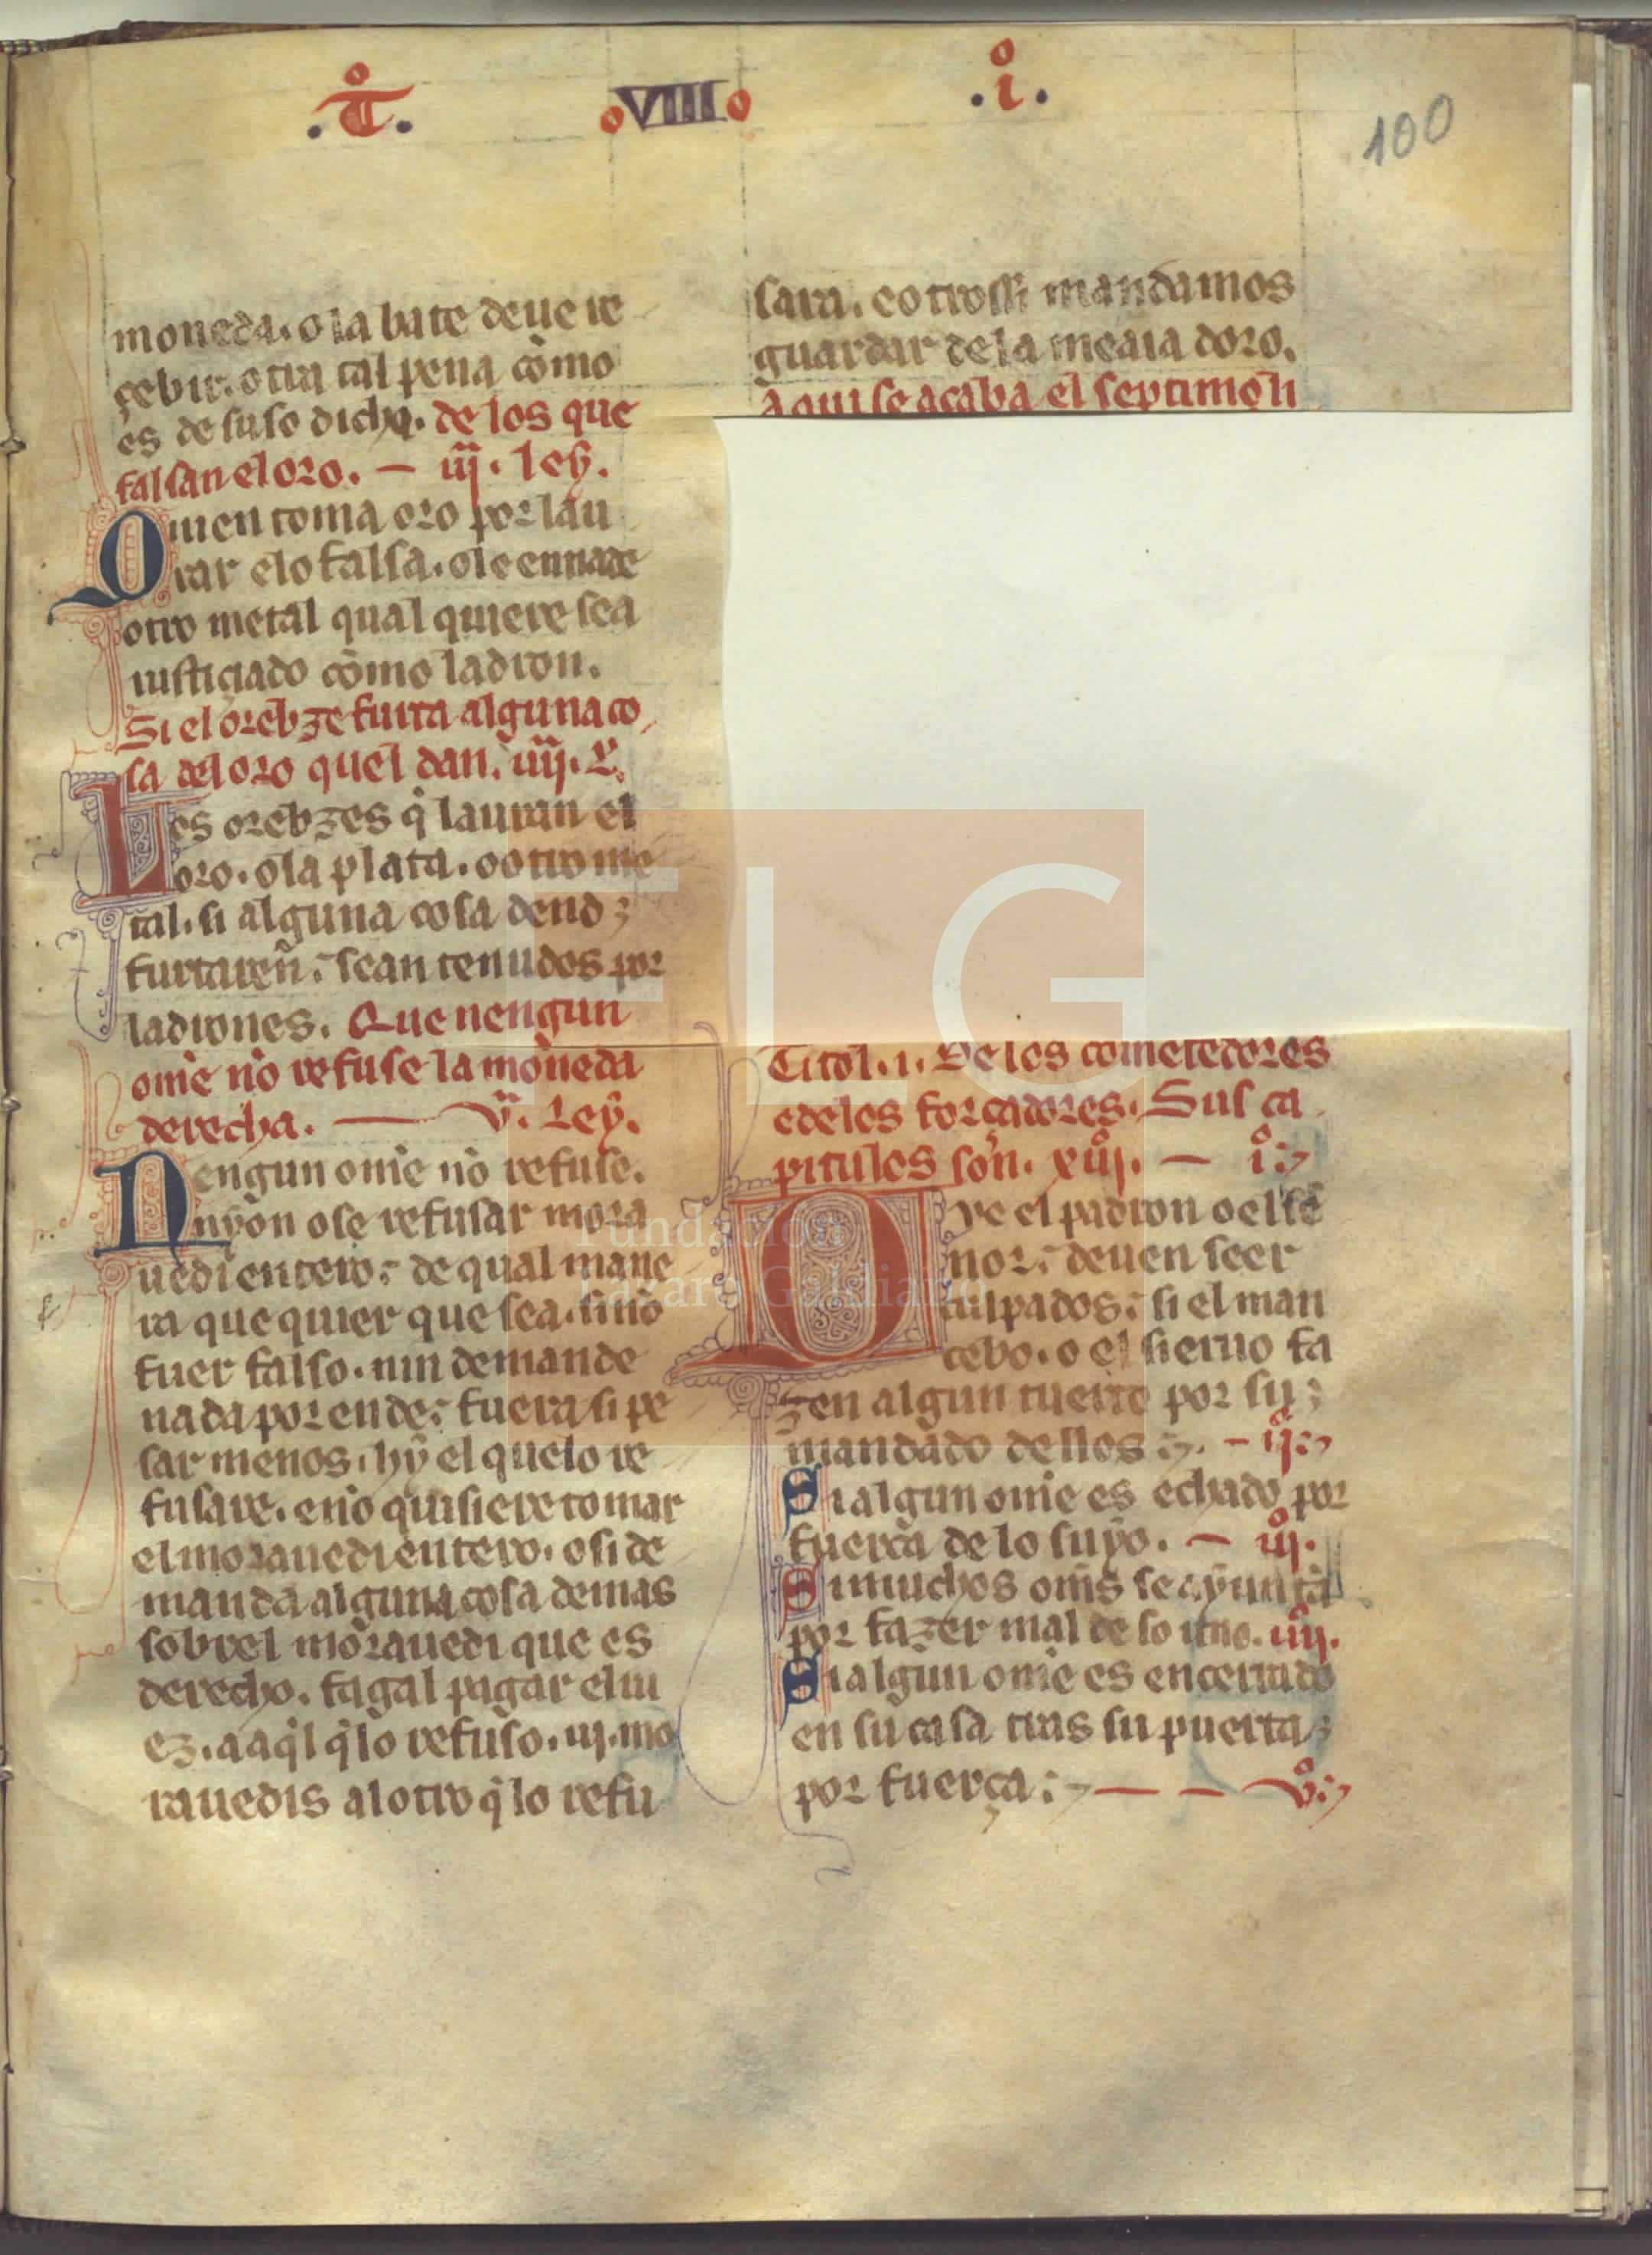 .T. VIIII .i.
100
moneda. o la bate deue re
çebir. otra tal pena como
es de suso dicho. de los que
falsan el oro. — iij. ley.
Quien toma oro por lau
rar e lo falsa. o le ennade
otro metal qual quiere sea
iustiçiado como ladron.
Si el orebze furta alguna co
sa del oro quel dan. iiij. L.
Los orebzes q̇ lauran el
oro. o la plata. o otro me
tal. si alguna cosa dend
furtaren̄: sean tenudos por
ladrones. Que nengun
om̄e no refuse la moneda
derecha. — v. Ley.
Nengun om̄e no refuse.
nyon ose refusar mora
uedi entero: de qual mane
ra que quier que sea. si no
fuer falso. nin demande
nada por ende: fuera si pe
sar menos. hy el que lo re
fusare. e no quisiere tomar
el morauedi entero. o si de
manda alguna cosa demas
sobrel morauedi que es
derecho. fagal pagar el iu
ez. a aq̇l q̇ lo refuso. iij. mo
rauedis al otro q̇ lo refu
sara. e otrossi mandamos
guardar de la meaia doro.
Aqui se acaba el septimo li
Titol. i. De los cometedores
e de los forçadores. Sus ca
pitules son. xiij. — i.
Que el padron o el se
nor: deuen seer
culpados: si el man
cebo. o el sieruo fa
zen algun tuerto por su
mandado dellos. — ij.
Si algun om̄e es echado por
fuerça de lo suyo. — iij.
Si muchos om̄s se ayunta
por fazer mal de so uno. iiij.
Si algun om̄e es encerrado
en su casa tras su puerta
por fuerça: — — v.
FLG
Fundación
Lázaro Galdiano